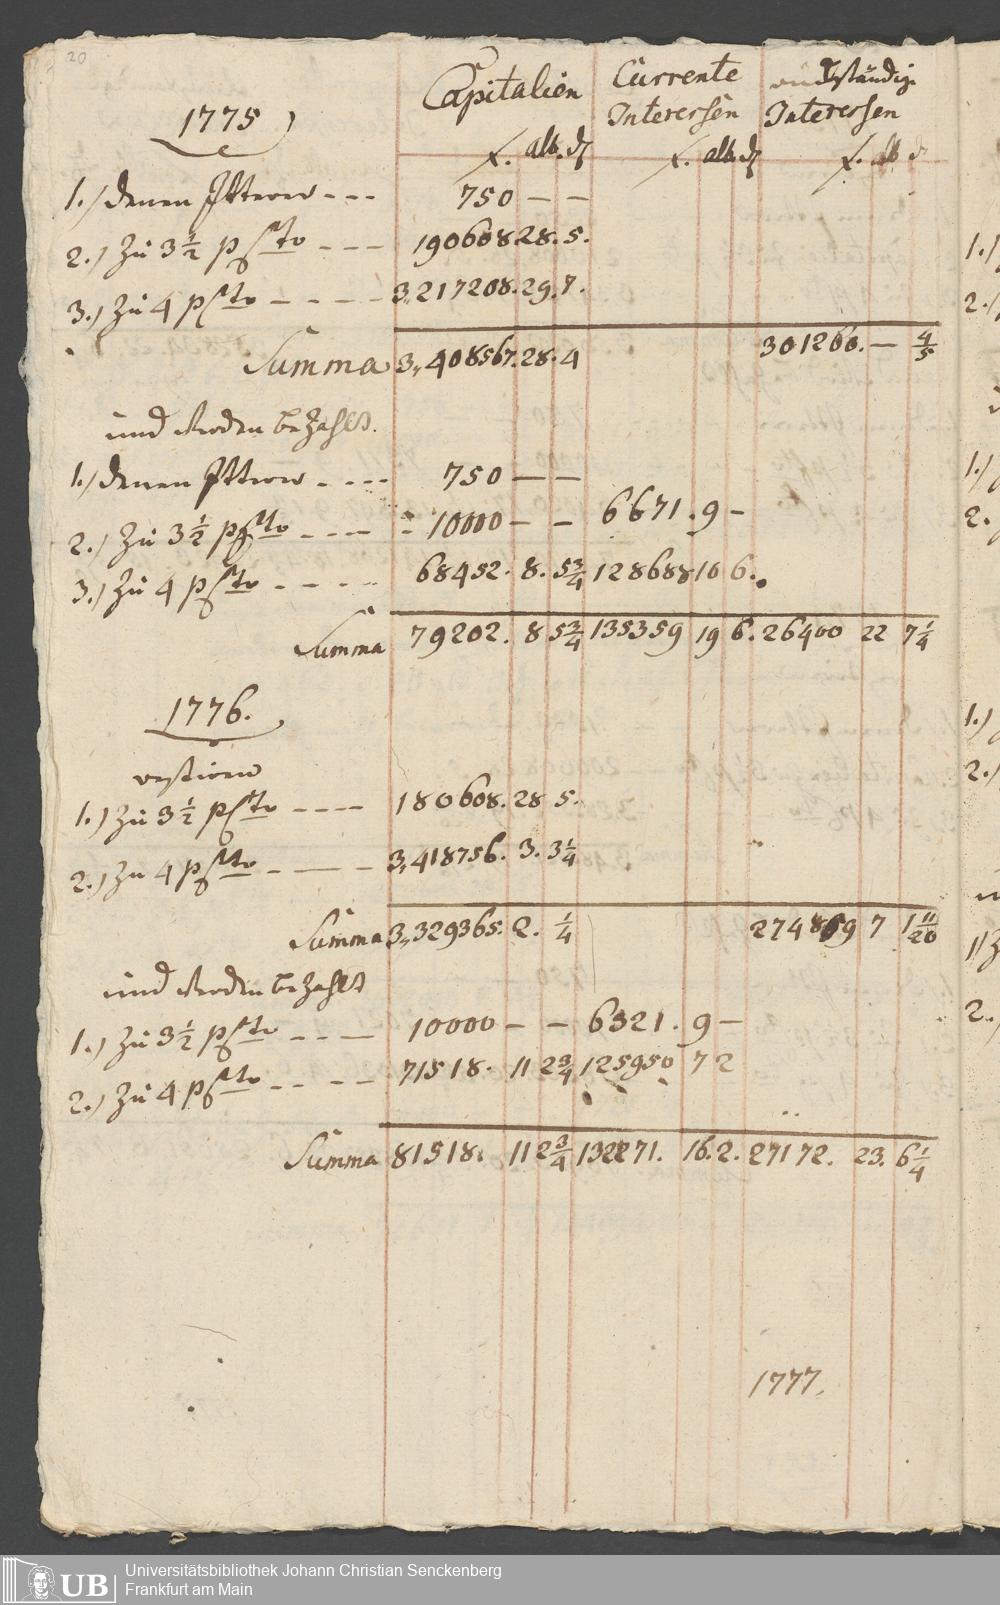 20
Capitalien Currente rückständige
1775 Interessen Interessen
f. alb. d f. alb. d f. alb d
1.) denen --- 750 — —
2.) Zu 3 1/2 p Cto --- 190608 28. 5.
3.) Zu 4 p Cto ---- 3,,217208. 29. 7.
Summa 3,,408567. 28. 4 301260. — 4/5
und werden bezahlt.
1.) denen ---- 750 — —
2.) Zu 3 1/2 p Cto --- 10000 — — 6671. 9 —
3.) Zu 4 p Cto ---- 68452. 8. 5 3/4 128688 10 6.
Summa 79202. 8 5 3/4 135359 19 6. 26400 22 7 1/4
1776.
restiren
1.) Zu 3 1/2 p Cto --- 180608. 28 5.
2.) Zu 4 p Cto --- 3,,418756. 3. 3 1/4
Summa 3,,329365. 2. 1/4 274859 7 1 11/20
und werden bezahlt
1.) Zu 3 1/2 p Cto --- 10000 — — 6321. 9 —
2.) Zu 4 p Cto ---- 71518. 11 2 3/4 125950 7 2
Summa 81518. 11 2 3/4 132271. 16. 2. 27172. 23. 6 1/4
1777.
1.)
2.)
1.)
2.
1.)
2.)
1.)
2.)
UB
Universitätsbibliothek Johann Christian Senckenberg
Frankfurt am Main